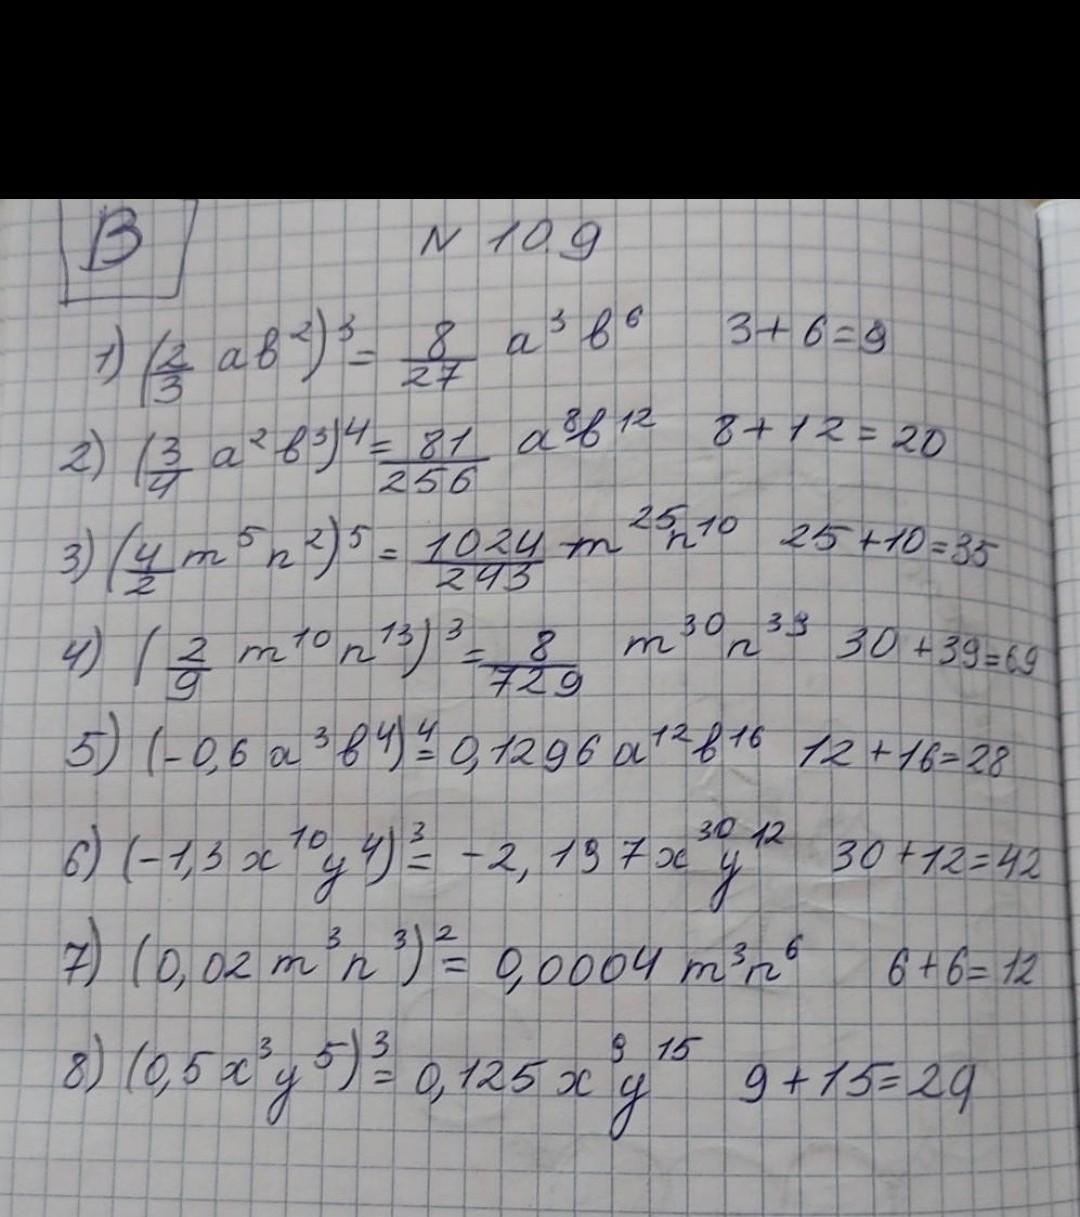 В
N 10.9
1) (2/3 ab²)³ = 8/27 a³b⁶ 3+6=9
2) (3/4 a²b³)⁴ = 81/256 a⁸b¹² 8+12=20
3) (4/2 m⁵n²)⁵ = 1024/243 m²⁵n¹⁰ 25+10=35
4) (2/9 m¹⁰n¹³)³ = 8/729 m³⁰n³⁹ 30+39=69
5) (-0,6a³b⁴)⁴ = 0,1296a¹²b¹⁶ 12+16=28
6) (-1,3x¹⁰y⁴)³ = -2,197x³⁰y¹² 30+12=42
7) (0,02m³n³)² = 0,0004m³n⁶ 6+6=12
8) (0,5x³y⁵)³ = 0,125x⁹y¹⁵ 9+15=29